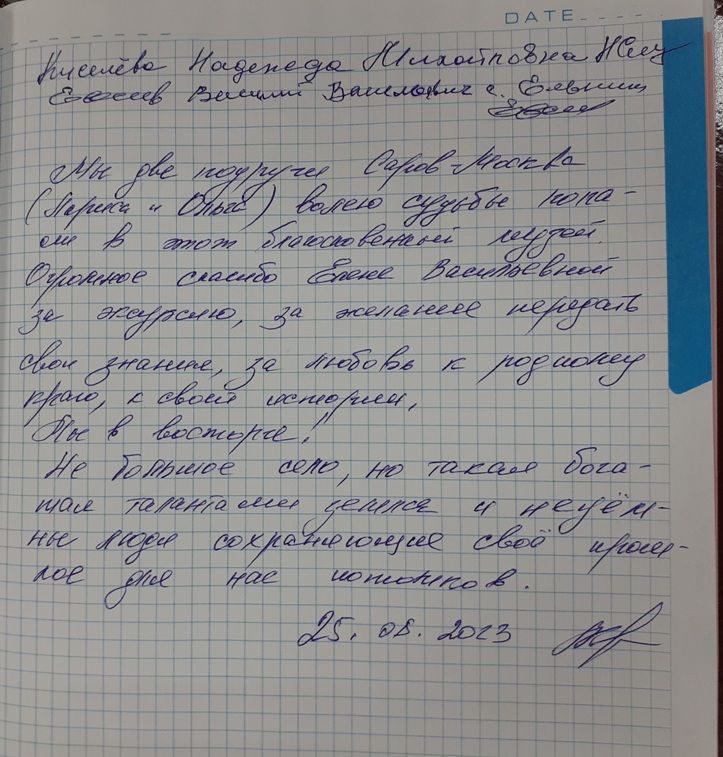 DATE
Киселёва Надежда
Василий Васильевич с.
Мы две подруги Саров-Москва
(Лариса и Ольга) волею судьбы попа-
ли в этот благословенный музей.
Огромное спасибо Елене Васильевной
за экскурсию, за желание передать
свои знания, за любовь к родному
краю, к своей истории,
Мы в восторге!
Не большое село, но такая бога-
тая талантами земля и неуём-
ны люди сохраняющие своё прош-
лое для нас потомков.
25.08.2023